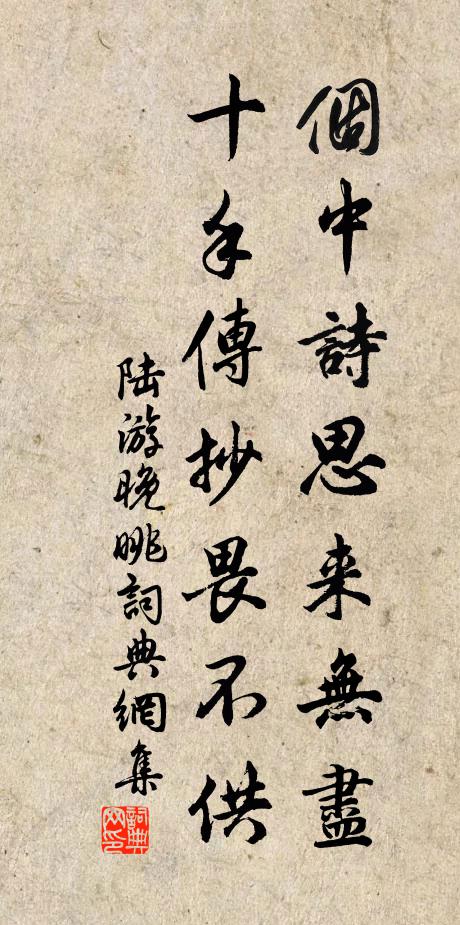 個中詩思来無盡
十手傳抄畏不供
陆游晚眺詞典網集
詞典网印